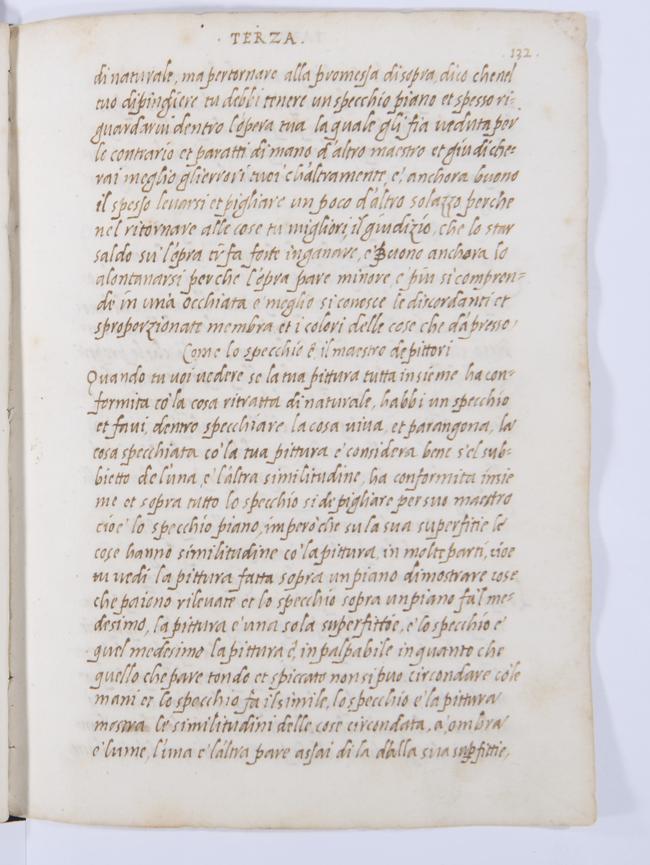 · TERZA ·
132 ·
di naturale, ma per tornare alla promessa di sopra, dico che nel
tuo dipingiere tu debbi tenere un specchio piano et spesso ri-
guardarvi dentro l'opera tua la quale gli fia veduta per
lo contrario et paratti di mano d'altro maestro et giudiche-
rai meglio gli errori tuoi ch'altramente, e' anchora buono
il spesso levarsi et pigliare un poco d'altro solazzo perche
nel ritornare alle cose tu migliori il giudizio, che lo star
saldo su l'opra ti fa forte inganare, e' Buono anchora lo
alontanarsi perche l'opra pare minore, e piu si compren-
de in una occhiata e meglio si conosce le discordanti et
sproporzionate membra et i colori delle cose che dapresso
Come lo specchio è il maestro de pittori
Quando tu voi vedere se la tua pittura tutta insieme ha con-
formita cō la cosa ritratta di naturale, habbi un specchio
et favi, dentro specchiare, la cosa viva, et parangona, la
cosa specchiata cō la tua pittura e considera bene s'el sub-
bietto de l'una, e l'altra similitudine, ha conformita insie
me et sopra tutto lo specchio si de pigliare per suo maestro
cioe' lo specchio piano, imperò che su la sua superfitie le
cose hanno similitudine cō la pittura, in molte parti, cioe
tu vedi la pittura fatta sopra un piano dimostrare cose
che paiono rilevate et lo specchio sopra un piano fa'l me-
desimo, la pittura e' una sola superfittie, e' lo specchio e'
quel medesimo la pittura è, inpalpabile inquanto che
quello che pare tondo et spiccato non si puo circondare cō le
mani et lo specchio fa il simile, lo specchio e la pittura
mostra le similitudini delle cose circondata, a' ombra
e' lume, l'una e l'altra pare assai di la dalla sua supfittie,